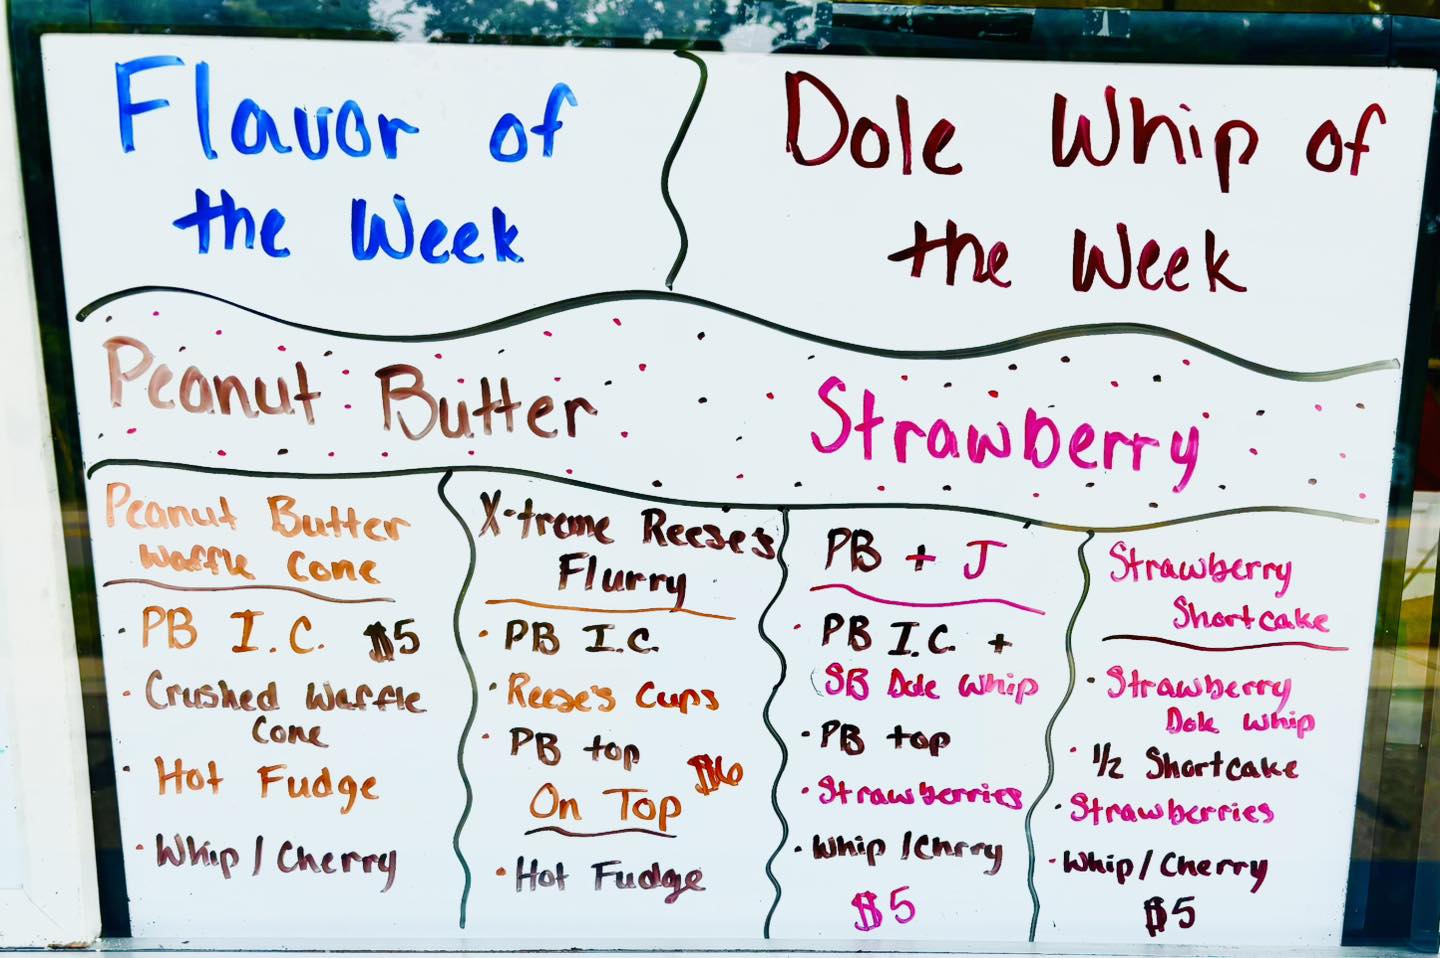 Flavor of
the Week
Dole Whip of
the Week
Peanut Butter
Strawberry
Peanut Butter
Waffle Cone
• PB I.C. $5
• Crushed Waffle
Cone
• Hot Fudge
• Whip / Cherry
X-treme Reese's
Flurry
• PB I.C.
• Reese's Cups
• PB top
$6
On Top
• Hot Fudge
PB + J
• PB I.C. +
SB Dole Whip
• PB top
• Strawberries
• Whip / Cherry
$5
Strawberry
Shortcake
• Strawberry
Dole Whip
• 1/2 Shortcake
• Strawberries
• Whip / Cherry
$5